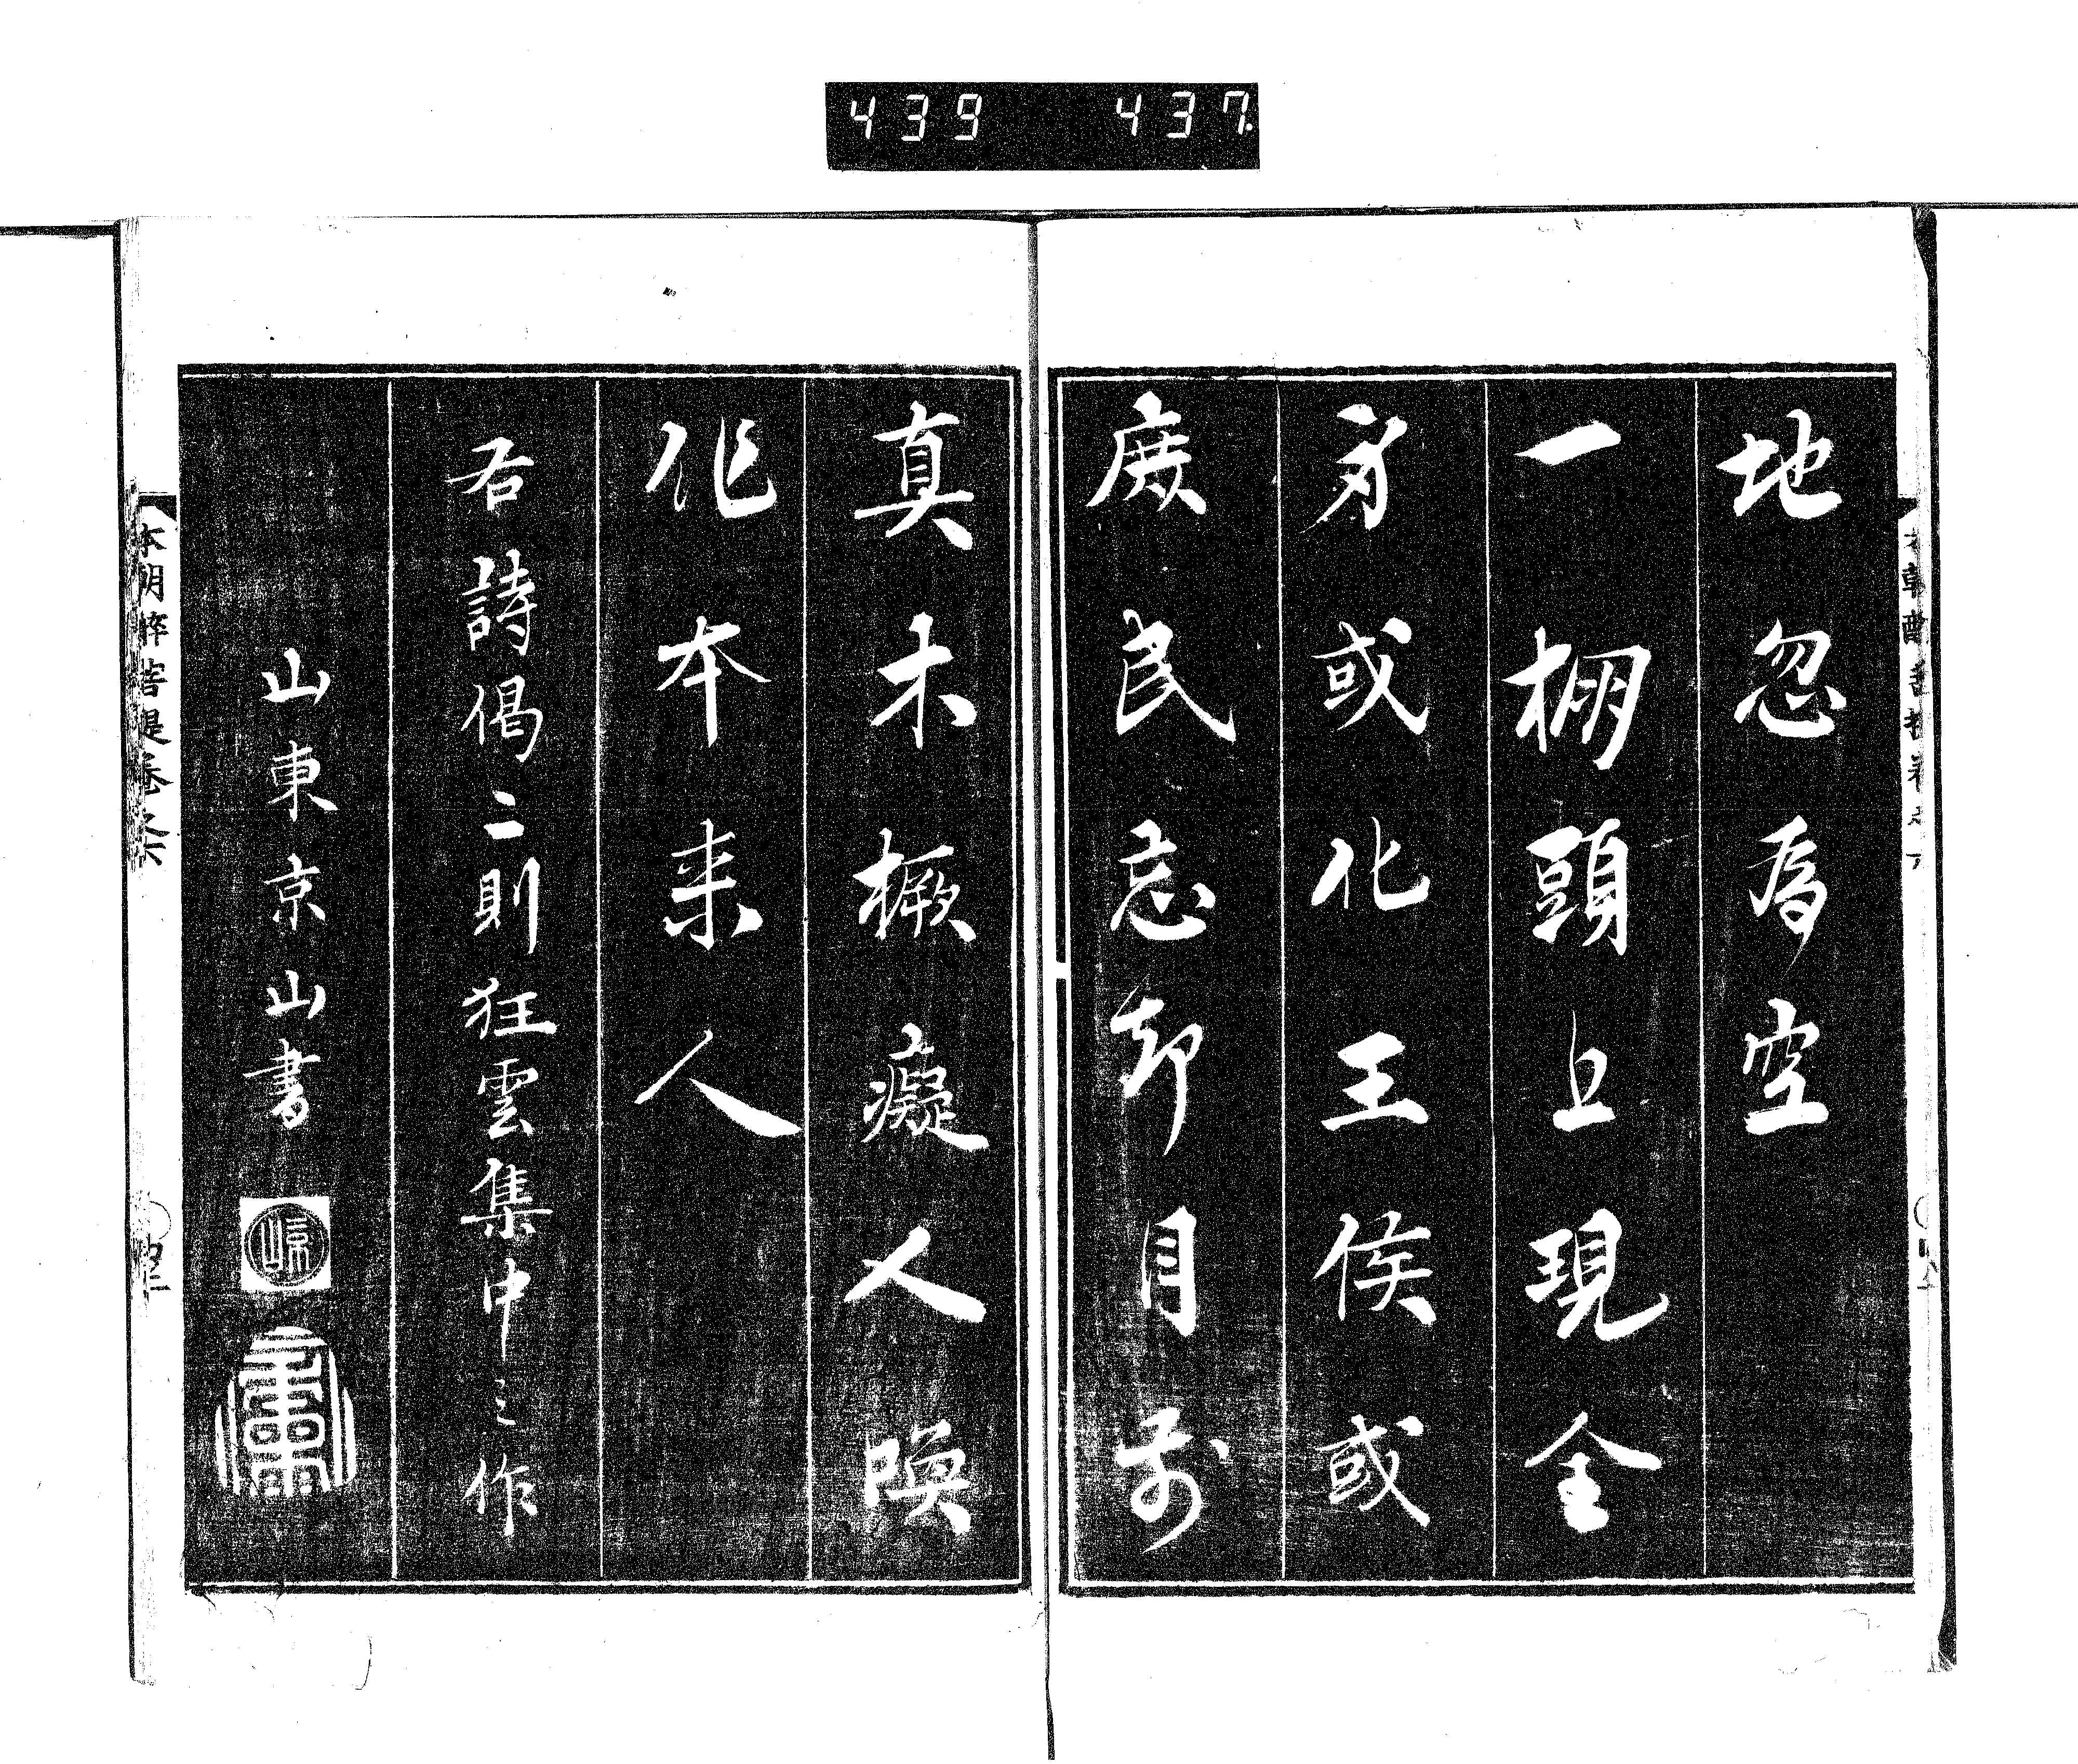 439 437
地忽為空
一棚頭上現全
身或化王侯或
庶民忘却目前
真木橛癡人喚
作本来人
右詩偈二則狂雲集中之作
山東京山書
本朝酔菩提巻之六